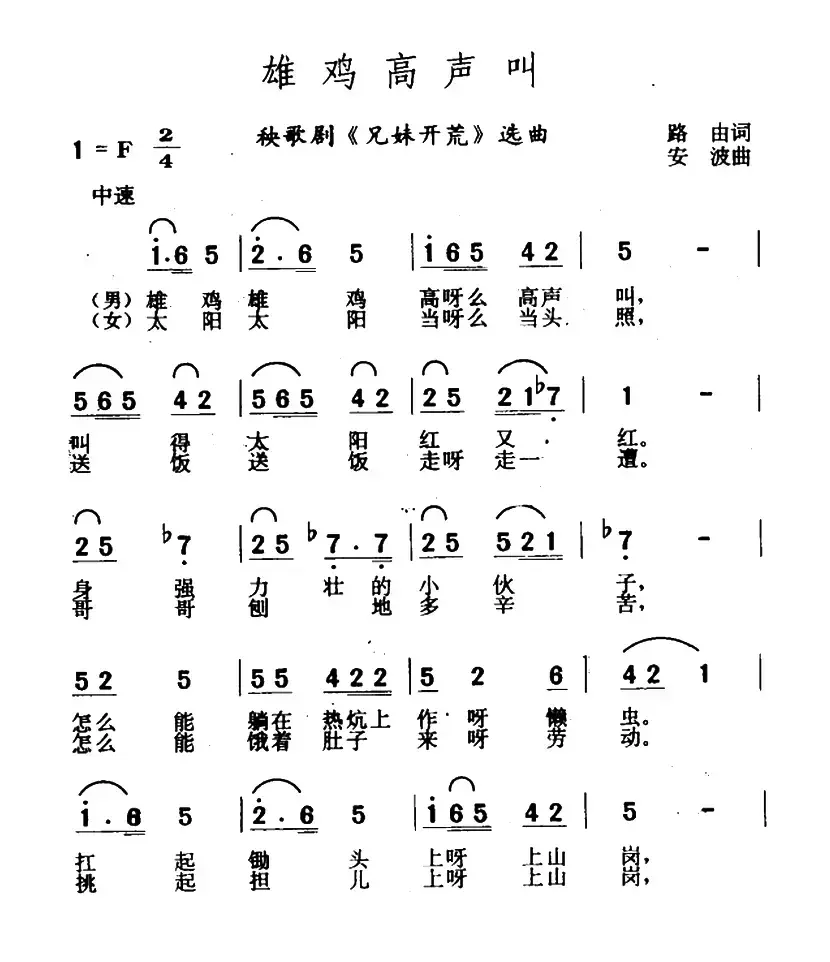 雄鸡高声叫
1=F 2/4 秧歌剧《兄妹开荒》选曲 路由词
安波曲
中速
1·6 5 | 2·6 5 | 165 42 | 5 - |
(男)雄鸡雄鸡高呀么高声叫,
(女)太阳太阳当呀么当头照,
565 42 | 565 42 | 25 21♭7 | 1 - |
叫得太阳红又红。
送饭送饭走呀走一遭。
25 ♭7 | 25 ♭7·7 | 25 521 | ♭7 - |
身强力壮的小伙子,
哥哥刨地多辛苦,
52 5 | 55 422 | 5 2 6 | 42 1 |
怎么能躺在热炕上作呀懒虫。
怎么能饿着肚子来呀劳动。
1·6 5 | 2·6 5 | 165 42 | 5 - |
扛起锄头上呀上山岗,
挑起担儿上呀上山岗,